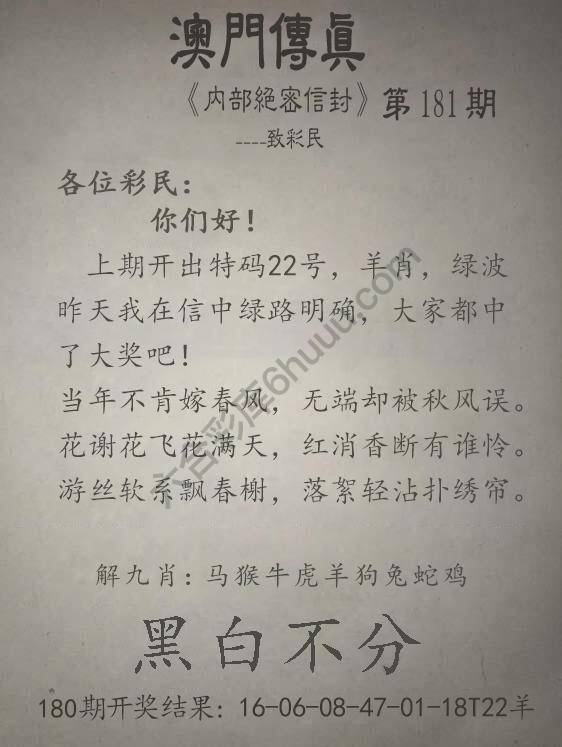 澳門傳眞
《内部絕密信封》第181期
----致彩民
各位彩民：
你们好！
上期开出特码22号，羊肖，绿波
昨天我在信中绿路明确，大家都中
了大奖吧！
当年不肯嫁春风，无端却被秋风误。
花谢花飞花满天，红消香断有谁怜。
游丝软系飘春榭，落絮轻沾扑绣帘。
六合彩库6huuu.com
解九肖：马猴牛虎羊狗兔蛇鸡
黑白不分
180期开奖结果：16-06-08-47-01-18T22羊